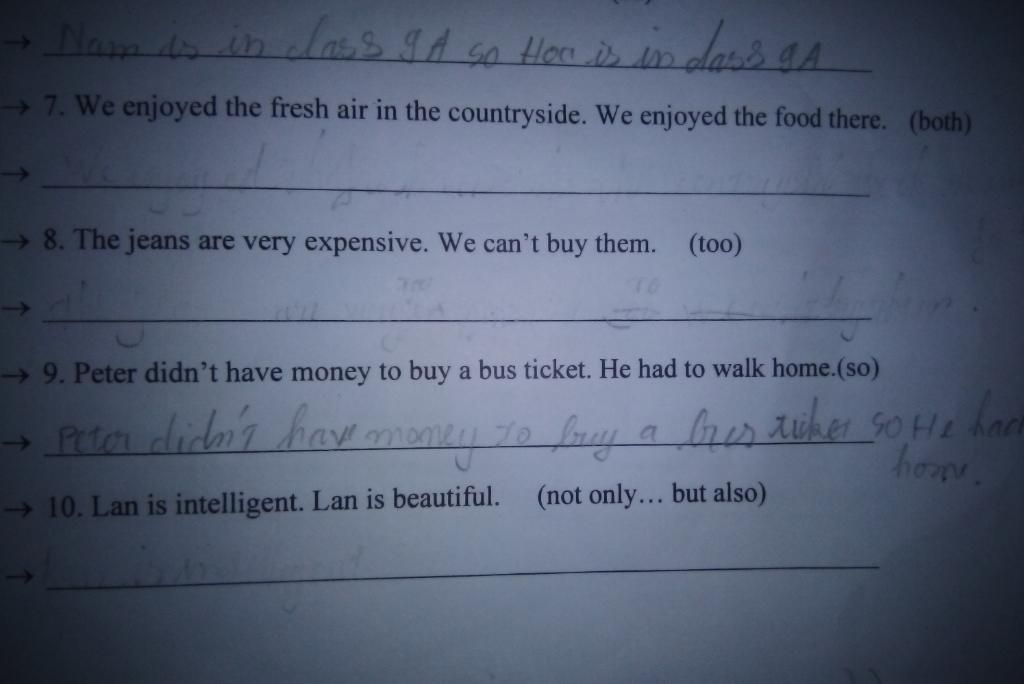 → Nam is in class 9A so Hoa is in class 9A
→ 7. We enjoyed the fresh air in the countryside. We enjoyed the food there. (both)
→ We enjoyed
→ 8. The jeans are very expensive. We can't buy them. (too)
too TO
→
→ 9. Peter didn't have money to buy a bus ticket. He had to walk home.(so)
→ Peter didn't have money to buy a bus ticket so He had
home.
→ 10. Lan is intelligent. Lan is beautiful. (not only... but also)
→ is intelligent